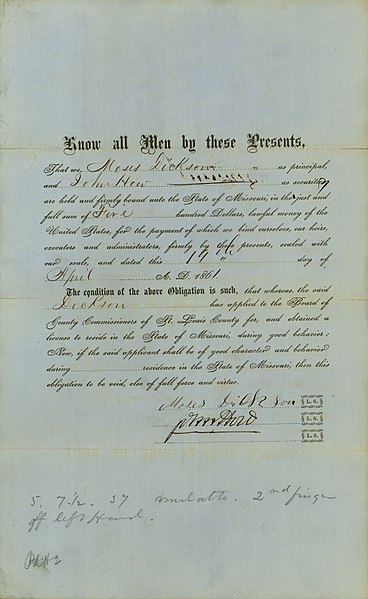 Know all Men by these Presents,
That we, Moses Dickson " as principal,
and John How as securities,
are held and firmly bound unto the State of Missouri, in the just and
full sum of Five hundred Dollars, lawful money of the
United States, for the payment of which we bind ourselves, our heirs,
executors and administrators, firmly by these presents, sealed with
our seals, and dated this 17th day of
April A. D. 1861
The condition of the above Obligation is such, that whereas, the said
Dickson has applied to the Board of
County Commissioners of St. Louis County for, and obtained a
license to reside in the State of Missouri, during good behavior:
Now, if the said applicant shall be of good character and behavior
during residence in the State of Missouri, then this
obligation to be void, else of full force and virtue.
Moses Dickson L. S.
L. S.
L. S.
5. 7 1/2. 37 mulatto. 2nd finger
off left Hand.